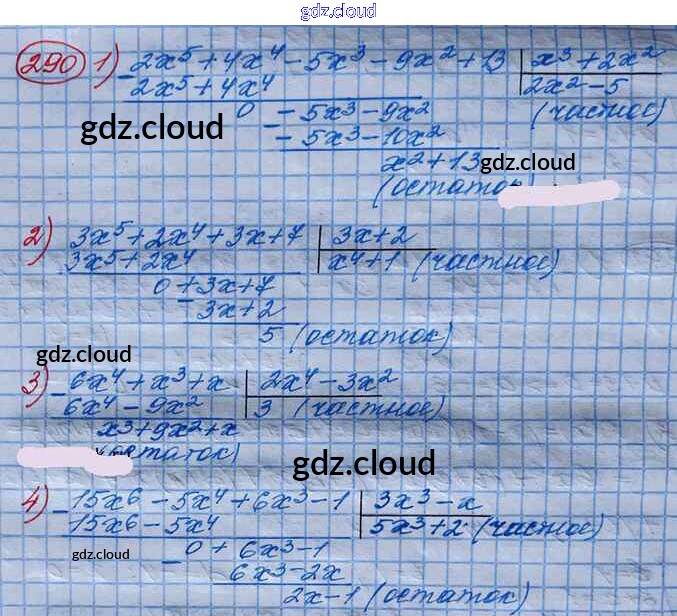 gdz.cloud
290 1) 2x⁵ + 4x⁴ - 5x³ - 9x² + 13 | x³ + 2x²
- 2x⁵ + 4x⁴ | 2x² - 5
0 - 5x³ - 9x² (частное)
- - 5x³ - 10x²
gdz.cloud
x² + 13
gdz.cloud
(остаток
2) 3x⁵ + 2x⁴ + 3x + 7 | 3x + 2
3x⁵ + 2x⁴ | x⁴ + 1 (частное)
0 + 3x + 7
- 3x + 2
5 (остаток)
gdz.cloud
3) - 6x⁴ + x³ + x | 2x⁴ - 3x²
6x⁴ - 9x² | 3 (частное)
x³ + 9x² + x
(остаток)
gdz.cloud
4) - 15x⁶ - 5x⁴ + 6x³ - 1 | 3x³ - x
15x⁶ - 5x⁴ | 5x³ + 2 (частное)
gdz.cloud
- 0 + 6x³ - 1
6x³ - 2x
2x - 1 (остаток)